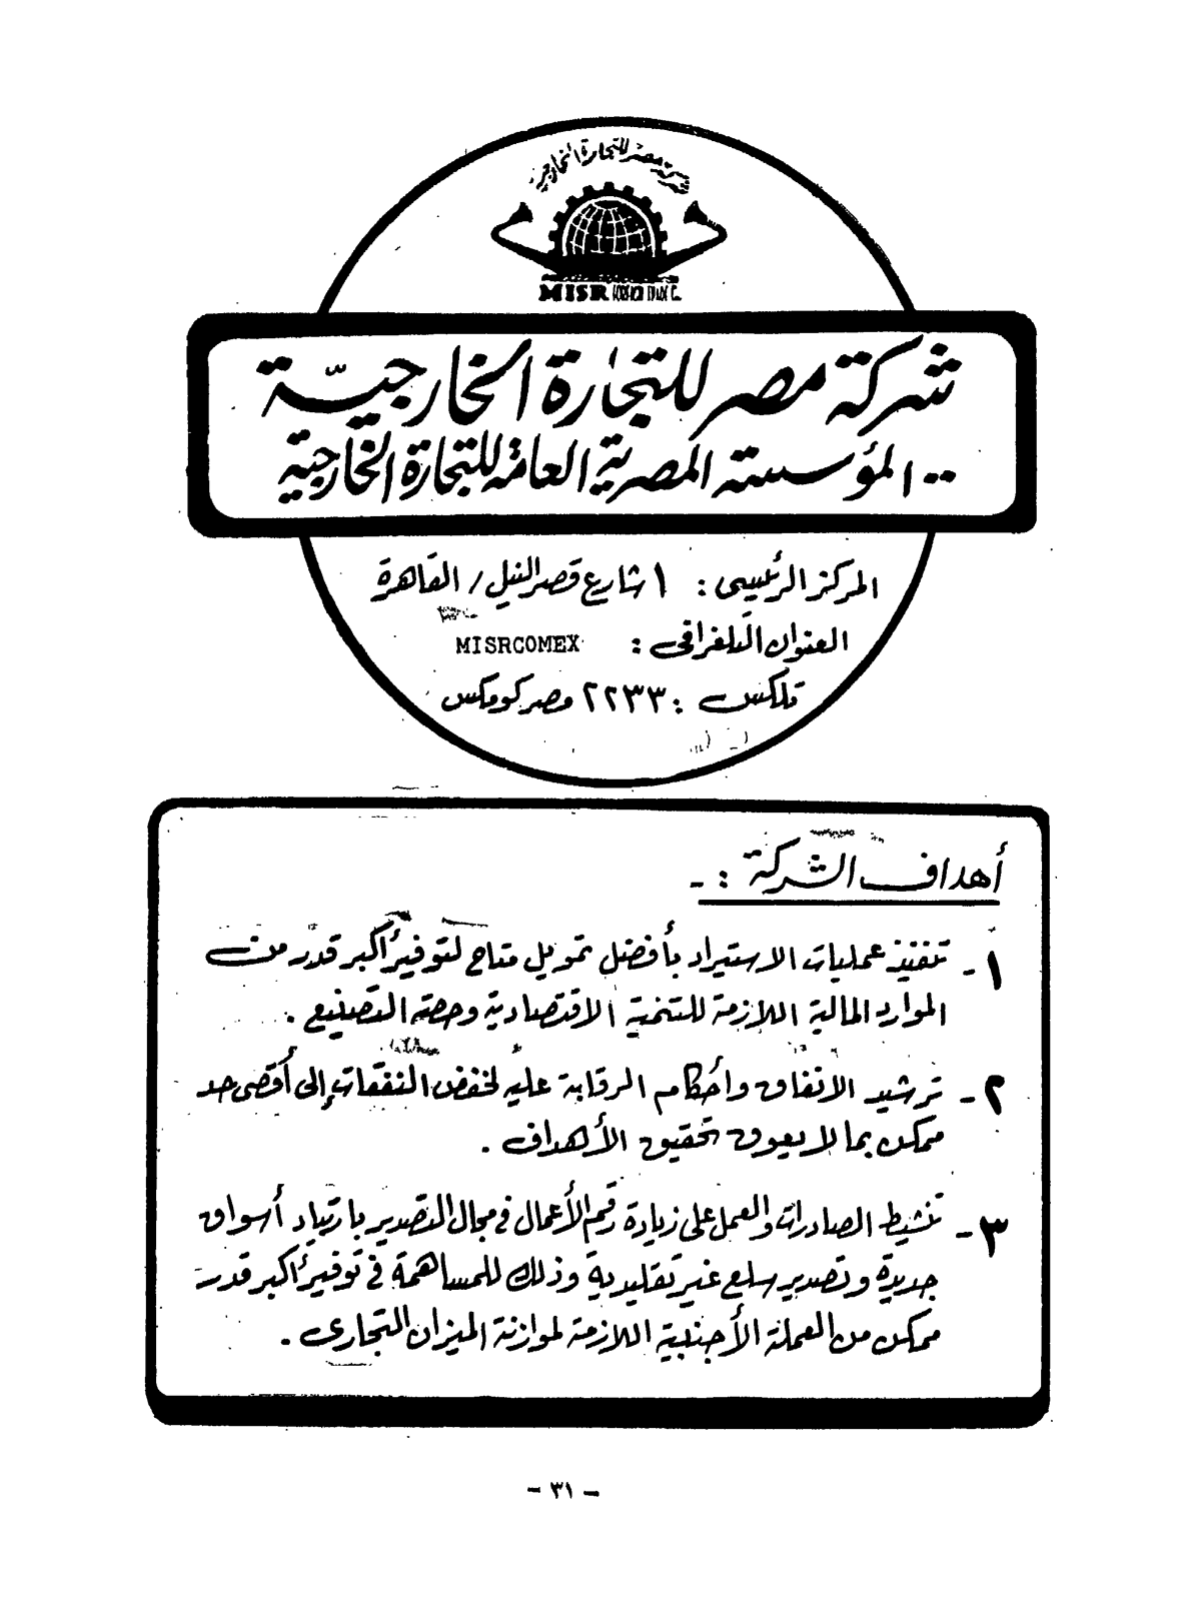 شركة مصر للتجارة الخارجية
MISR
شركة مصر للتجارة الخارجيّة
المؤسسة المصرية العامة للتجارة الخارجية ..
المركز الرئيسى : ١ شارع قصر النيل / القاهرة
العنوان التلغرافى : MISRCOMEX
تلكس : ٢٢٣٣ مصر كومكس
أهداف الشركة : -
١ - تنفيذ عمليات الاستيراد بأفضل تمويل متاح لتوفير أكبر قدر من
الموارد المالية اللازمة للتنمية الاقتصادية وحصة التصنيع .
٢ - ترشيد الانفاق وأحكام الرقابة عليه لخفض النفقات إلى أقصى حد
ممكن بما لا يعوق تحقيق الأهداف .
٣ - تنشيط الصادرات والعمل على زيادة رقم الأعمال فى مجال التصدير بارتياد أسواق
جديدة وتصدير سلع غير تقليدية وذلك للمساهمة فى توفير أكبر قدر
ممكن من العملة الأجنبية اللازمة لموازنة الميزان التجارى .
- ٣١ -